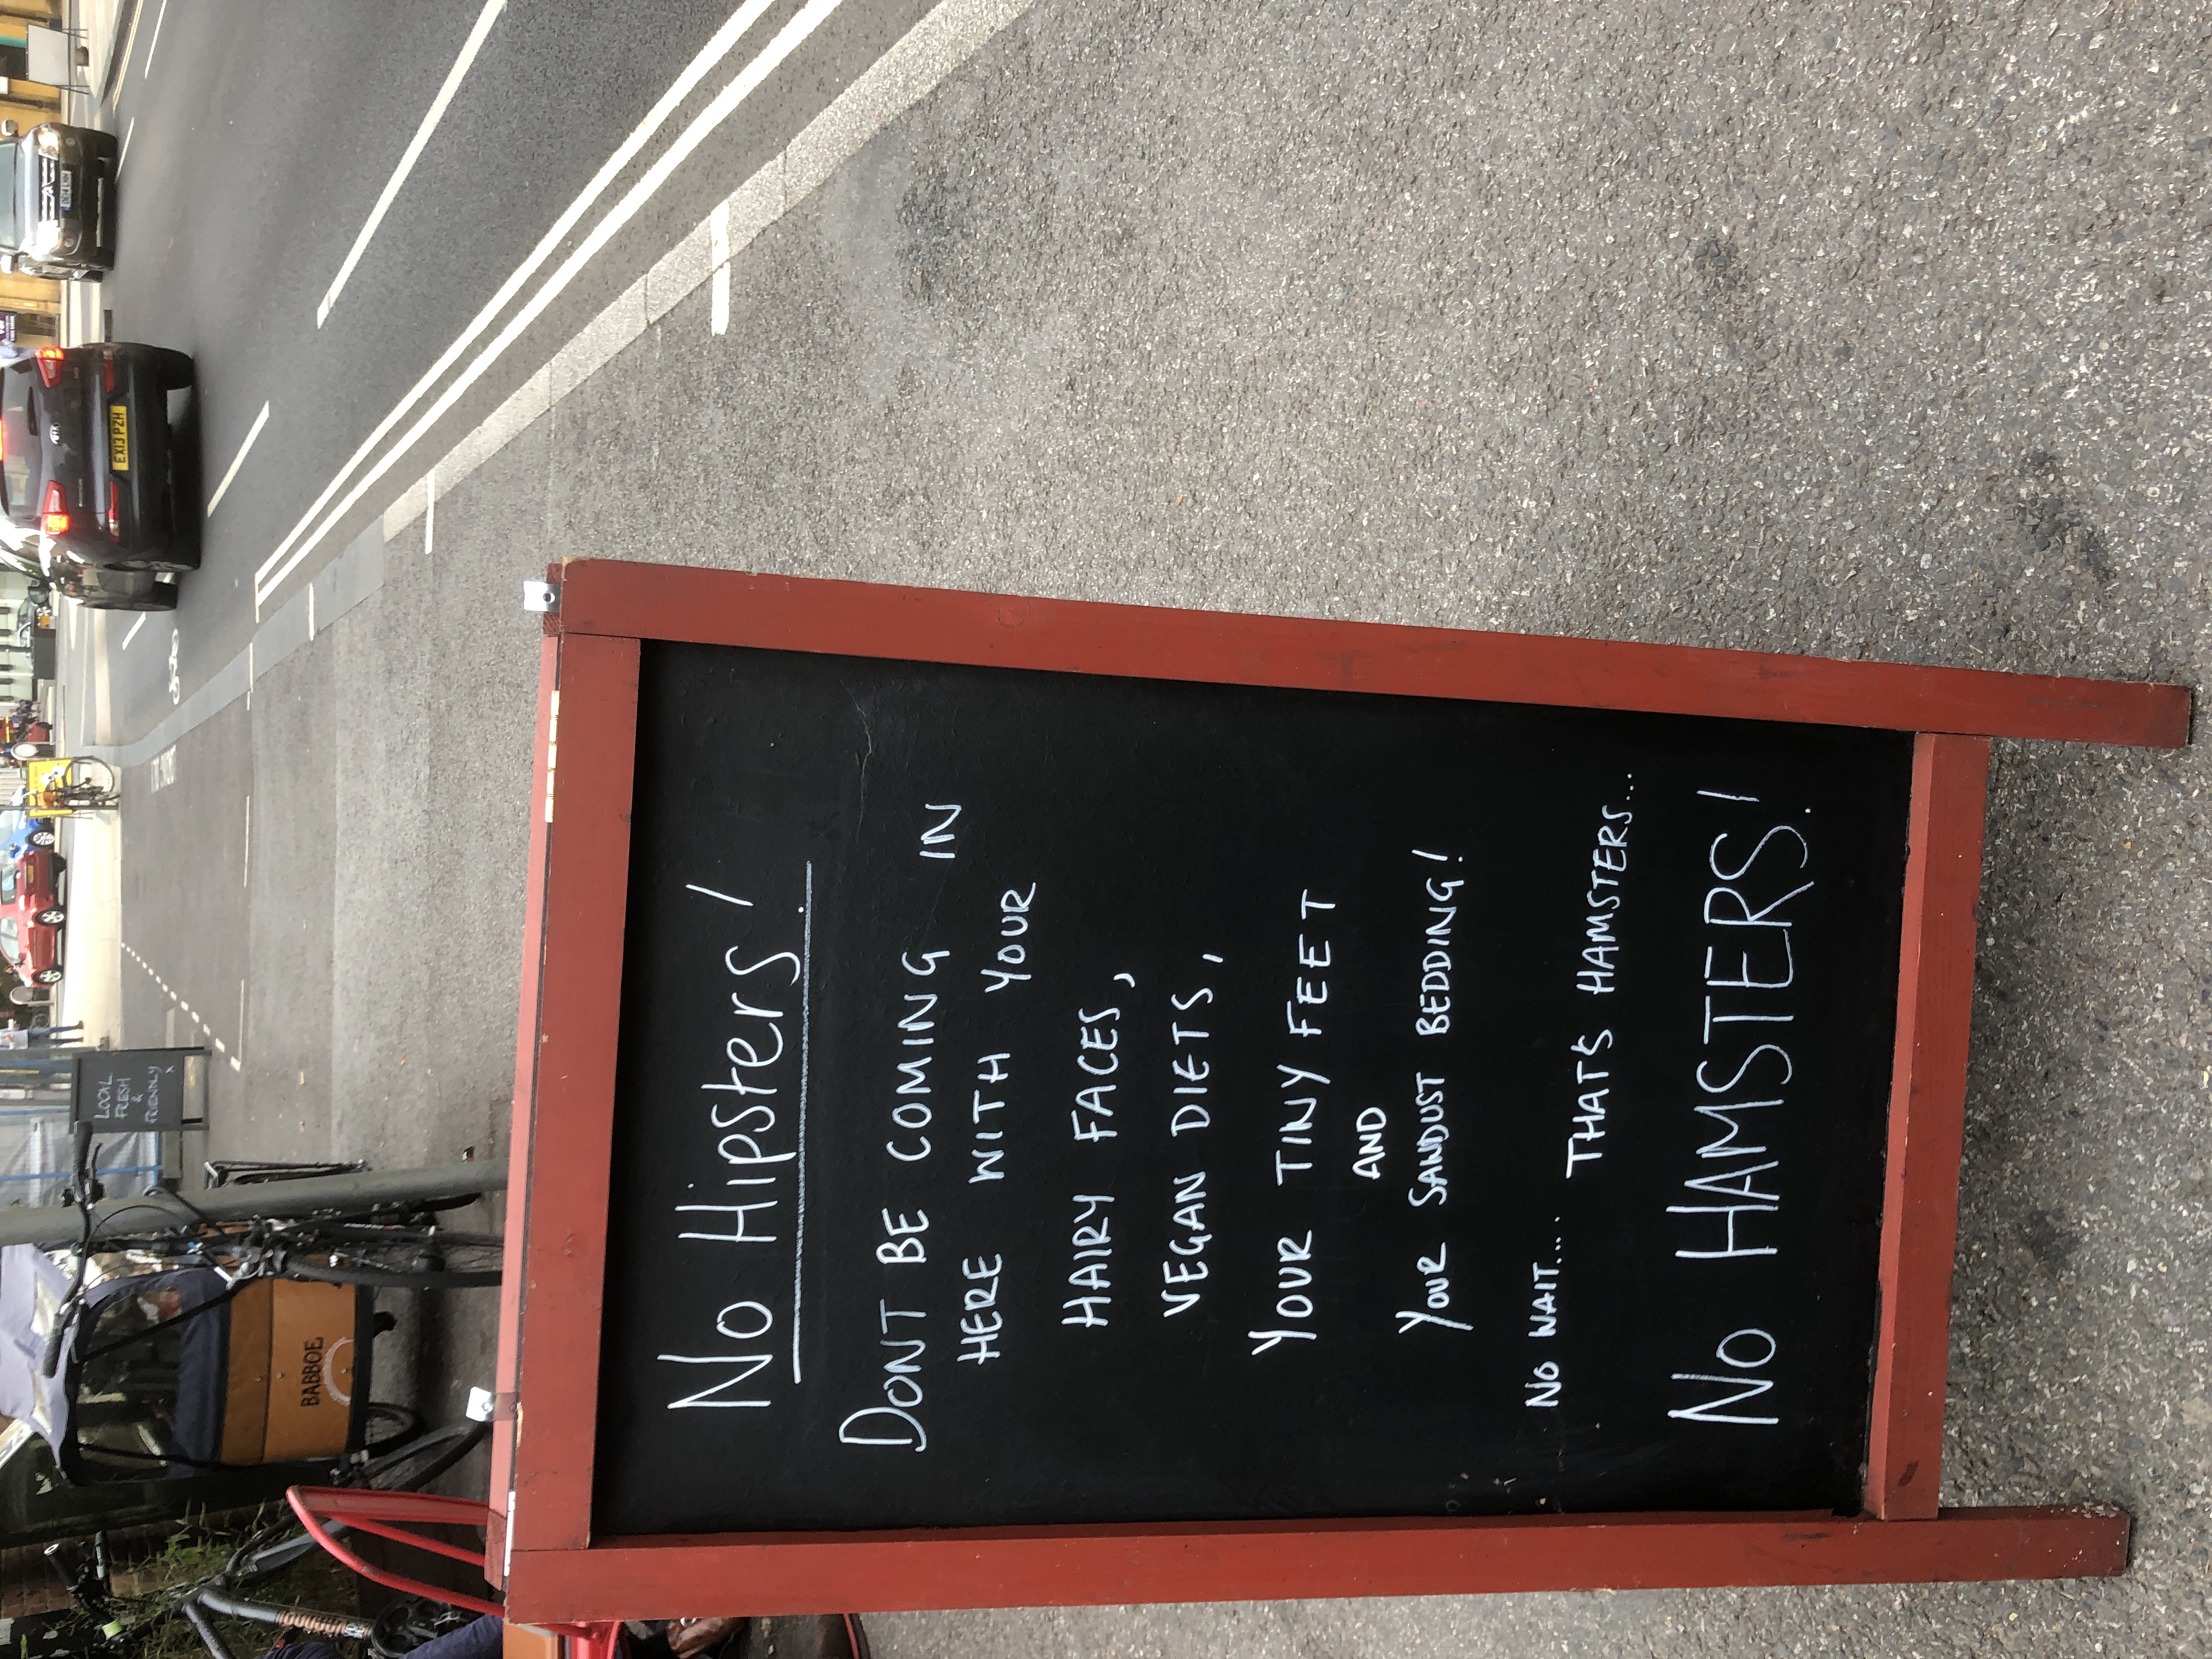 No Hipsters!
DONT BE COMING IN
HERE WITH YOUR
HAIRY FACES,
VEGAN DIETS,
YOUR TINY FEET
AND
YOUR SAWDUST BEDDING!
NO WAIT... THAT'S HAMSTERS...
NO HAMSTERS!
LOCAL
FRESH
&
FRIENDLY
x
BABBOE
EX13 PZH